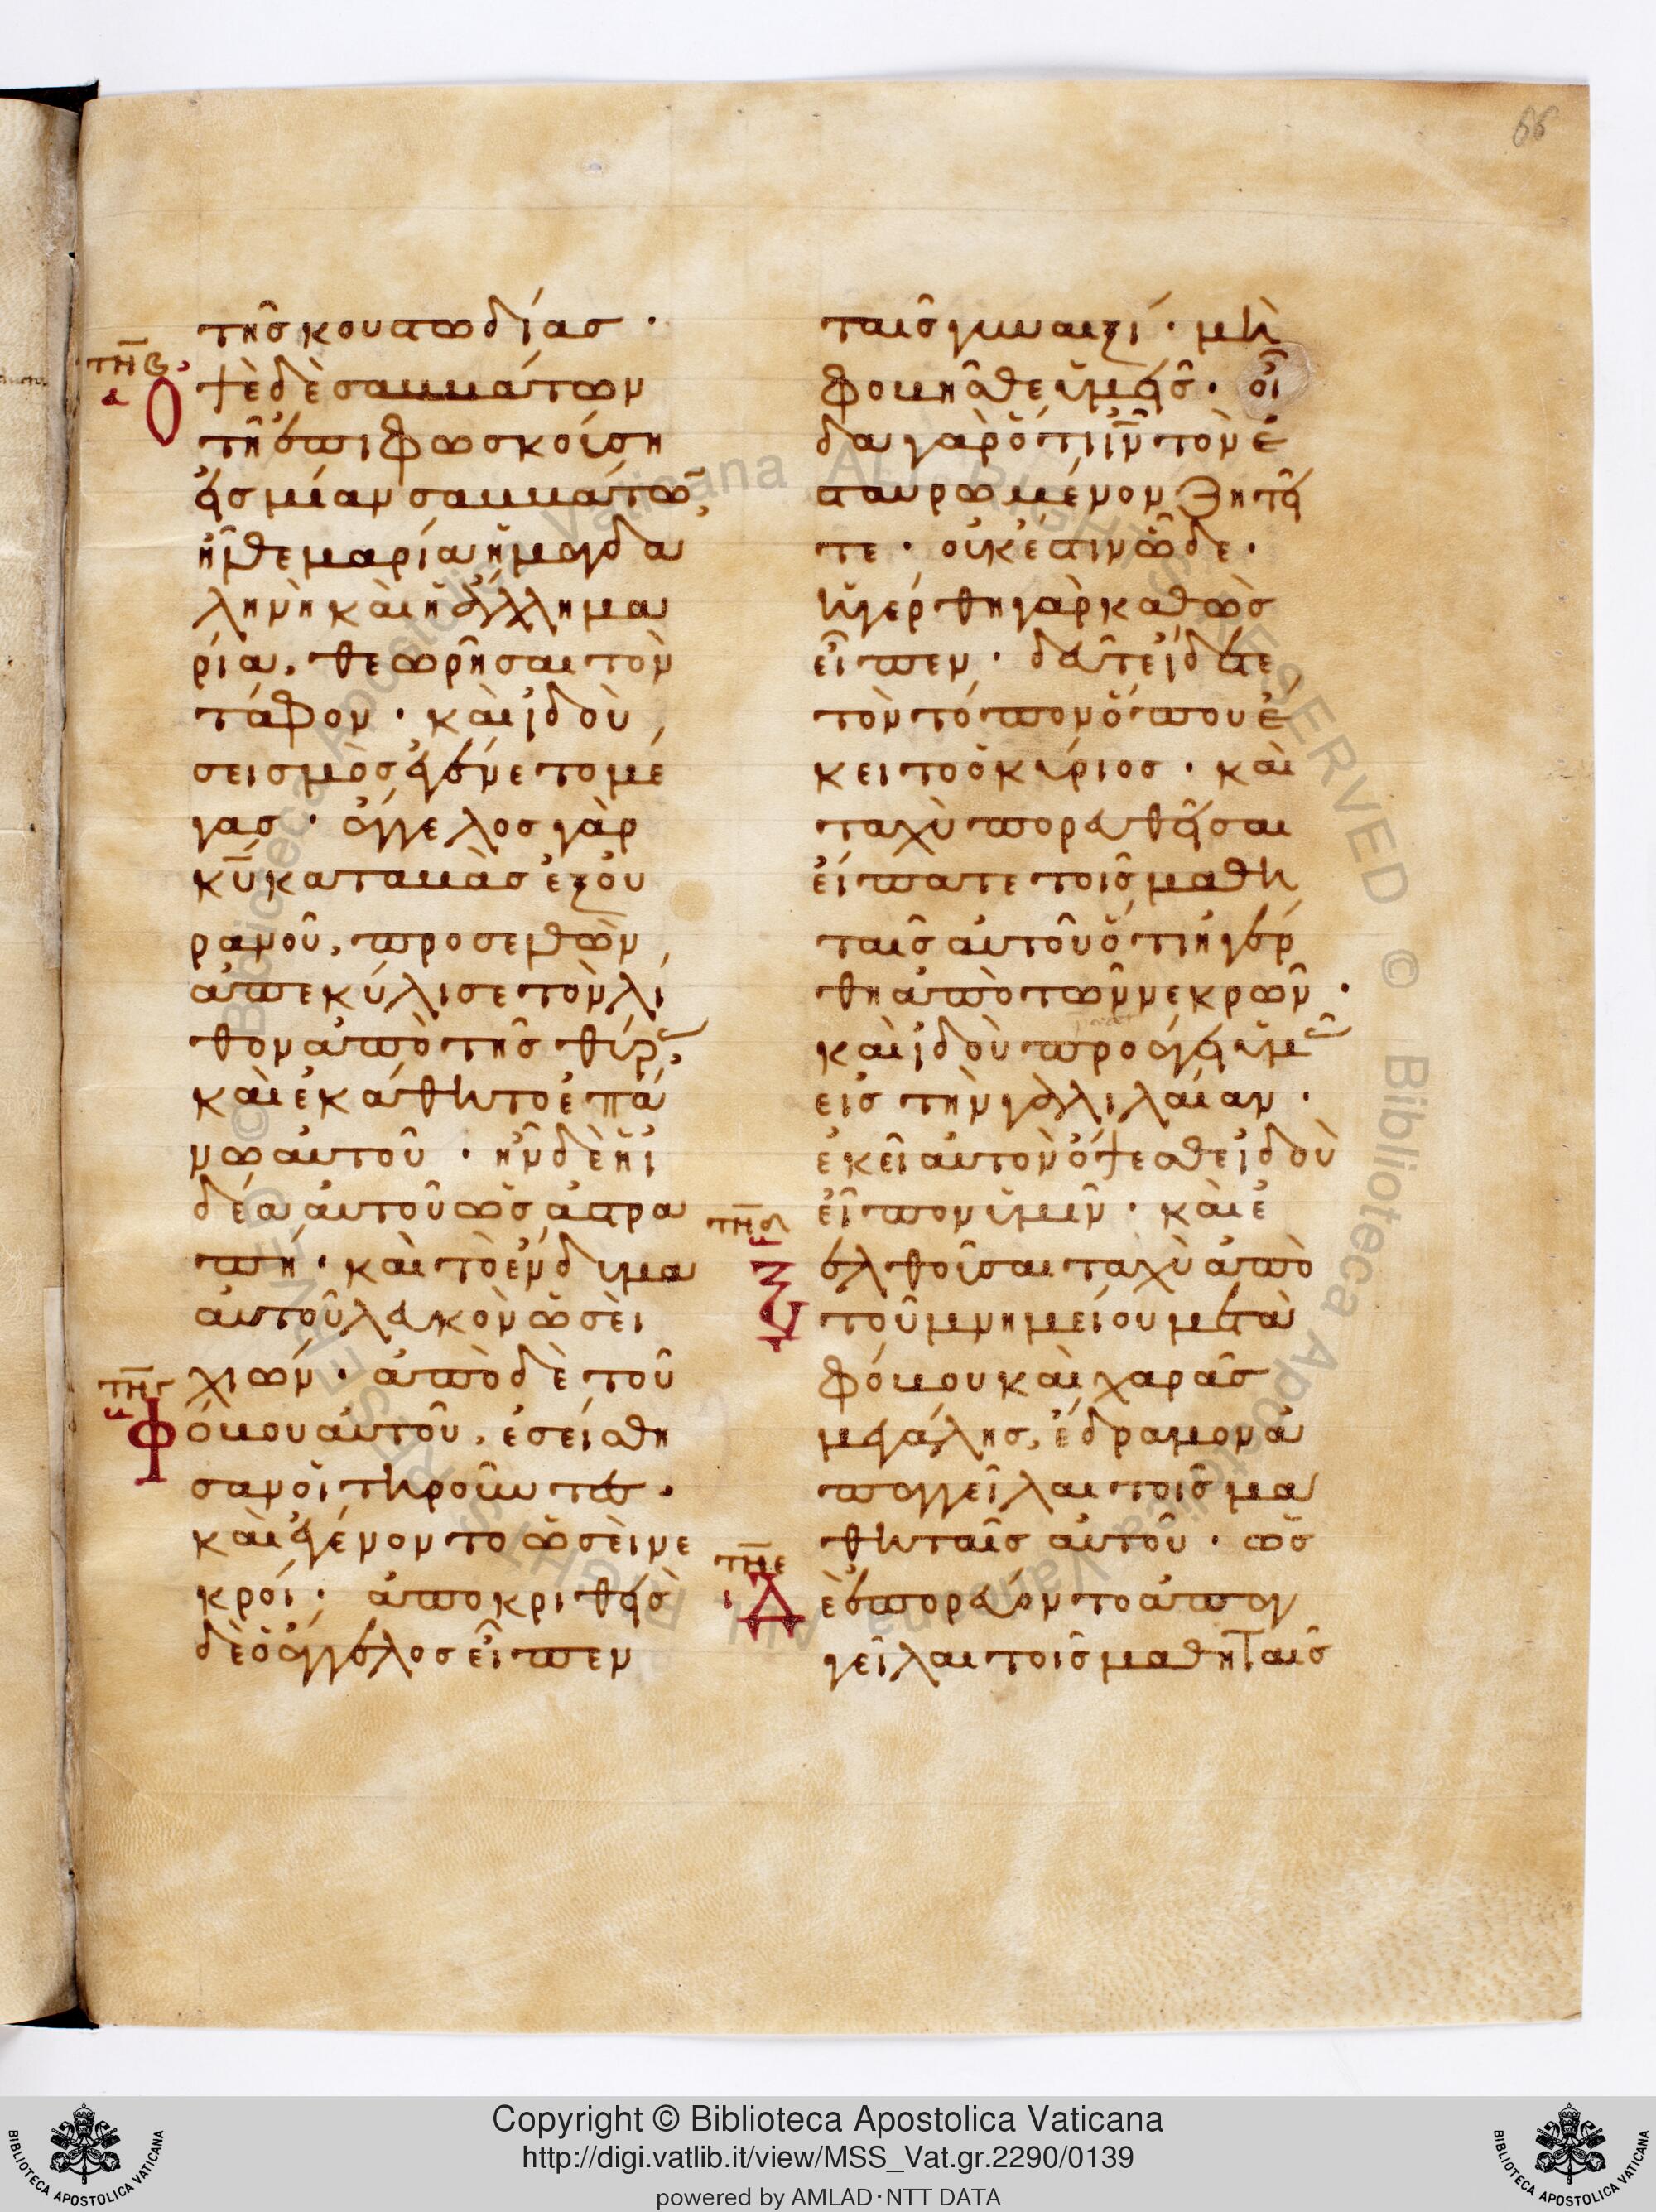 66
τῆς κουστωδίας ·
τνβ
α
Ὀψὲ δὲ σαββάτων
τῆ ἐπιφωσκούση
εἰς μίαν σαββάτω̅,
ἦλθε μαρία ἡ μαγδα
ληνὴ καὶ ἡ ἄλλη μα
ρία, θεωρῆσαι τὸν
τάφον · καὶ ἰδοὺ,
σεισμὸς ἐγένετο μέ
γας · ἄγγελος γὰρ
κ̅υ̅ καταβὰς ἐξ οὐ
ρανοῦ, προσελθὼν,
ἀπεκύλισε τὸν λί
θον ἀπὸ τῆς θύρ,
καὶ ἐκάθητο ἐπά
νω αὐτοῦ · ἦν δὲ ἡ ἰ
δέα αὐτοῦ ὡς ἀστρα
πὴ · καὶ τὸ ἔνδυμα
αὐτοῦ λευκὸν ὡσεὶ
χιών · ἀπὸ δὲ τοῦ
τνγ
Φόβου αὐτοῦ, ἐσείσθη
σαν οἱ τηροῦντες ·
καὶ ἐγένοντο ὡσεὶ νε
κροί · ἀποκριθεὶς
δὲ ὁ ἄγγελος εἶπεν
ταῖς γυναιξί · μὴ
φοβῆσθε ὑμεῖς · οἶ
δα γὰρ ὅτι ι̅ν̅ τὸν ἐ
σταυρωμένον ζητεῖ
τε · οὐκ ἔστιν ὧδε ·
ἠγέρθη γὰρ καθὼς
εἶπεν · δεῦτε ἴδετε
τὸν τόπον ὅπου ἔ
κειτο ὁ κύριος · καὶ
ταχὺ πορευθεῖσαι
εἴπατε τοῖς μαθη
ταῖς αὐτοῦ ὅτι ἠγέρ
θη ἀπὸ τῶν νεκρῶν ·
καὶ ἰδοὺ προάγει ὑμᾶς
εἰς τὴν γαλιλαίαν ·
ἐκεῖ αὐτὸν ὄψεσθε ἰδοὺ
εἶπον ὑμῖν · καὶ ἐ
τνδ
ξελθοῦσαι ταχὺ ἀπὸ
τοῦ μνημείου μετὰ
φόβου καὶ χαρᾶς
μεγάλης, ἔδραμον ἀ
παγγεῖλαι τοῖς μα
θηταῖς αὐτοῦ · ὡς
τνε
ι
Δὲ ἐπορεύοντο ἀπαγ
γεῖλαι τοῖς μαθηταῖς
Copyright © Biblioteca Apostolica Vaticana
http://digi.vatlib.it/view/MSS_Vat.gr.2290/0139
powered by AMLAD·NTT DATA
BIBLIOTECA APOSTOLICA VATICANA
BIBLIOTECA APOSTOLICA VATICANA